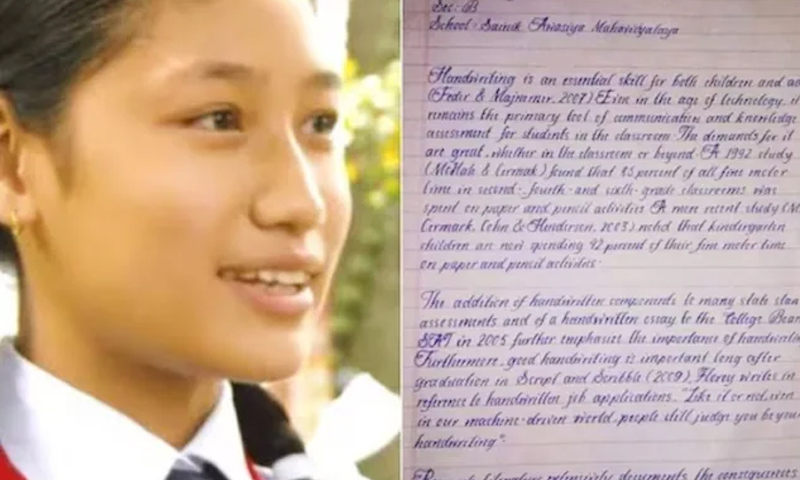 Sec:- 'B'
School:- Sainik Awasiya Mahavidyalaya
Handwriting is an essential skill for both children and
(Feder & Majnemer, 2007) Even in the age of technology, it
remains the primary tool of communication and knowledge
assessment for students in the classroom. The demands for it
are great, whether in the classroom or beyond. A 1992 study
(McHale & Cermak) found that 85 percent of all fine motor
time in second- fourth- and sixth- grade classrooms was
spent on paper and pencil activities. A more recent study
Cermark, Cohn & Henderson, 2003) noted that kindergarten
children are now spending 42 percent of their fine motor time
on paper and pencil activities.
The addition of handwritten components to many state
assessments and of a handwritten essay to the College
SAT in 2005 further emphasize the importance of
Furthermore, good handwriting is important long after
graduation in Script and Scribble (2009), Florey writes in
reference to handwritten job applications, "Like it or not, even
in our machine-driven world, people still judge you by your
handwriting".
the consequences